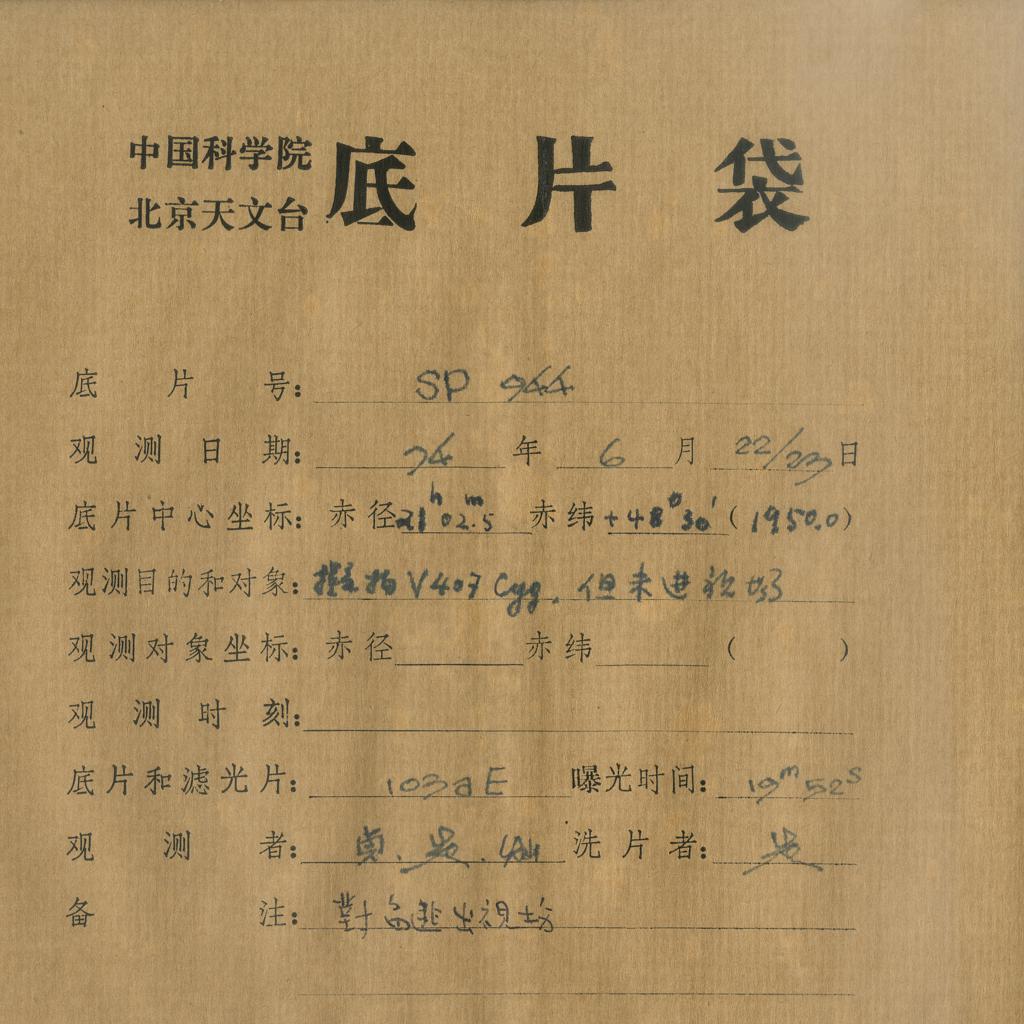 中国科学院
北京天文台
底片袋
底片号： SP 944
观测日期： 74 年 6 月 22/23 日
底片中心坐标： 赤径 21h02m.5 赤纬 +48°30′ (1950.0)
观测目的和对象： 拍 V407 Cyg. 但未进视场
观测对象坐标： 赤径 赤纬 ( )
观测时刻：
底片和滤光片： 103aE 曝光时间： 19m52s
观测者： 洗片者：
备注： 對象逃出視场